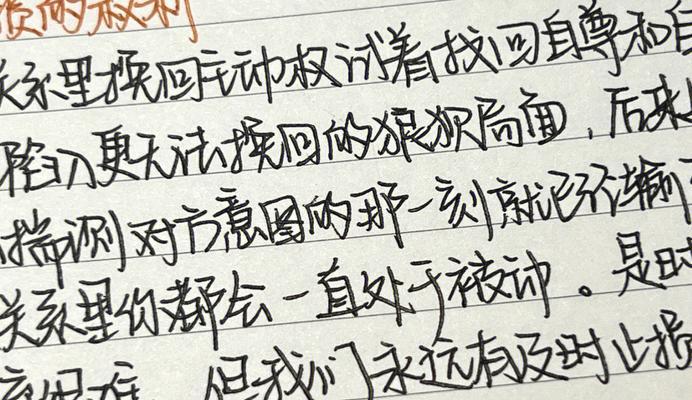 损的权利
关系里换回主动权试着找回自尊和自
陷入更无法换回的狼狈局面，后来
揣测对方意图的那一刻就已经输
关系里你都会一直处于被动。是时
很难，但我们永远有及时止损